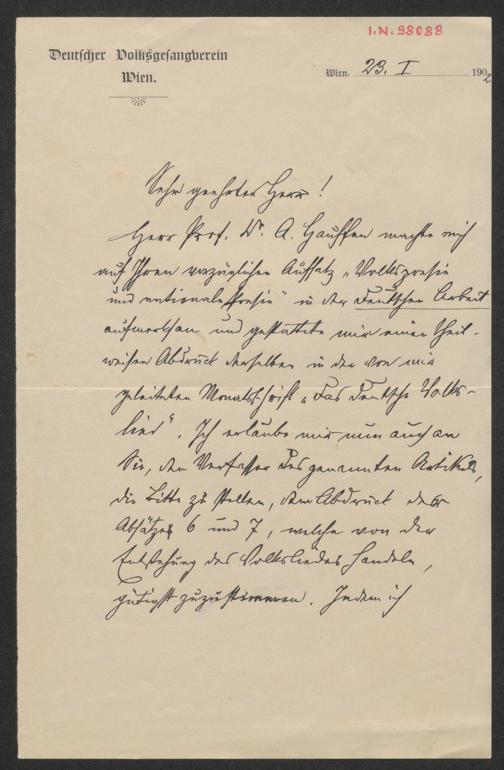 I.N. 98088
Deutscher Volksgesangverein
Wien.
Wien, 23. I 1902
Sehr geehrter Herr!
Herr Prof. Dr. A. Hauffen machte mich
auf Ihren vorzüglichen Aufsatz „Volkspoesie
und nationale Poesie" in der Deutschen Arbeit
aufmerksam und gestattete mir einen theil-
weisen Abdruck derselben in der von mir
geleiteten Monatschrift „Das deutsche Volks-
lied". Ich erlaube mir nun auch an
Sie, den Verfasser des genannten Artikels,
die Bitte zu stellen, dem Abdruck der
Absätze 6 und 7, welche von der
Entstehung des Volksliedes handeln,
gütigst zuzustimmen. Indem ich